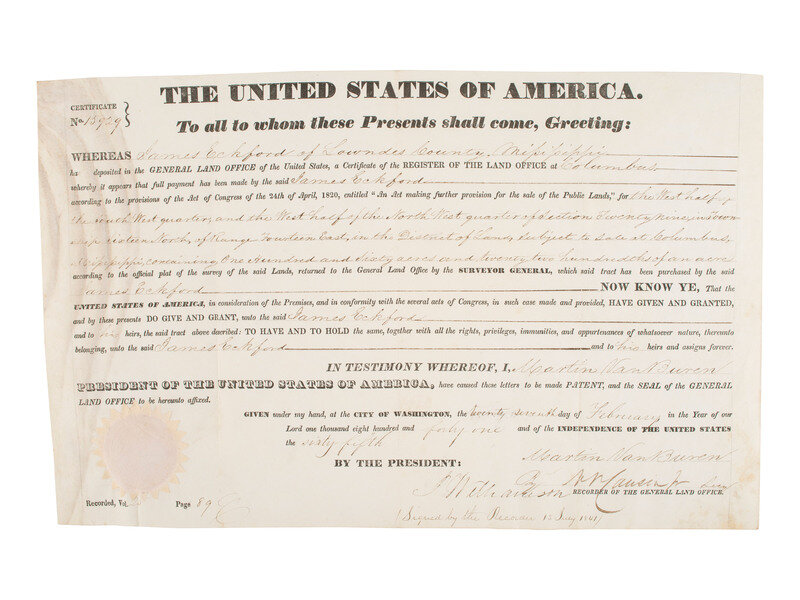 THE UNITED STATES OF AMERICA.
CERTIFICATE
No. 13929
To all to whom these Presents shall come, Greeting:
WHEREAS James Eckford of Lowndes County, Mississippi
ha deposited in the GENERAL LAND OFFICE of the United States, a Certificate of the REGISTER OF THE LAND OFFICE at Columbus
whereby it appears that full payment has been made by the said James Eckford
according to the provisions of the Act of Congress of the 24th of April, 1820, entitled "An Act making further provision for the sale of the Public Lands," for the West half of
the South West quarter, and the West half of the North West quarter of Section Twenty nine, in Town
ship sixteen North, of Range Fourteen East, in the District of Lands Subject to Sale at Columbus,
Mississippi, containing One Hundred and Sixty acres and twenty two hundredths of an acre
according to the official plat of the survey of the said Lands, returned to the General Land Office by the SURVEYOR GENERAL, which said tract has been purchased by the said
James Eckford NOW KNOW YE, That the
UNITED STATES OF AMERICA, in consideration of the Premises, and in conformity with the several acts of Congress, in such case made and provided, HAVE GIVEN AND GRANTED,
and by these presents DO GIVE AND GRANT, unto the said James Eckford
and to his heirs, the said tract above described: TO HAVE AND TO HOLD the same, together with all the rights, privileges, immunities, and appurtenances of whatsoever nature, thereunto
belonging, unto the said James Eckford and to his heirs and assigns forever.
IN TESTIMONY WHEREOF, I, Martin Van Buren
PRESIDENT OF THE UNITED STATES OF AMERICA, have caused these letters to be made PATENT, and the SEAL of the GENERAL
LAND OFFICE to be hereunto affixed.
GIVEN under my hand, at the CITY OF WASHINGTON, the twenty seventh day of February in the Year of our
Lord one thousand eight hundred and forty one and of the INDEPENDENCE OF THE UNITED STATES
the sixty fifth
BY THE PRESIDENT: Martin Van Buren
By M. Van Buren Jr
Williamson RECORDER OF THE GENERAL LAND OFFICE.
Recorded, Vol. Page 89
(Signed by the Recorder 15 July 1841)